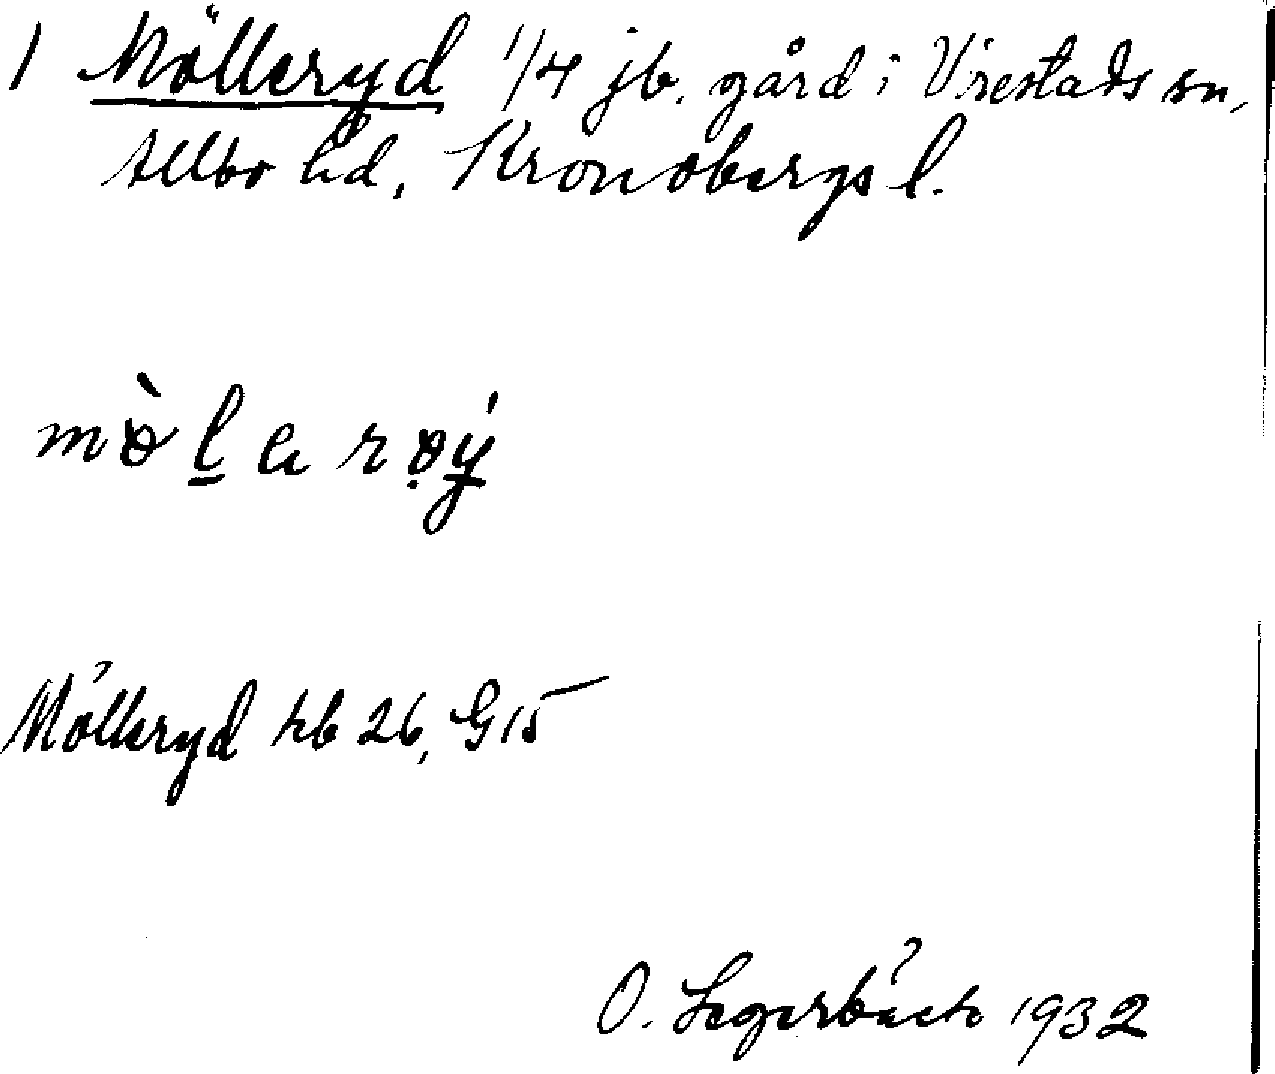 1 Mölleryd 1/4 jb. gård i Virestads sn,
Allbo hd, Kronobergs l.
Mölleryd kb 26, G15
O. Segerbäck 1932